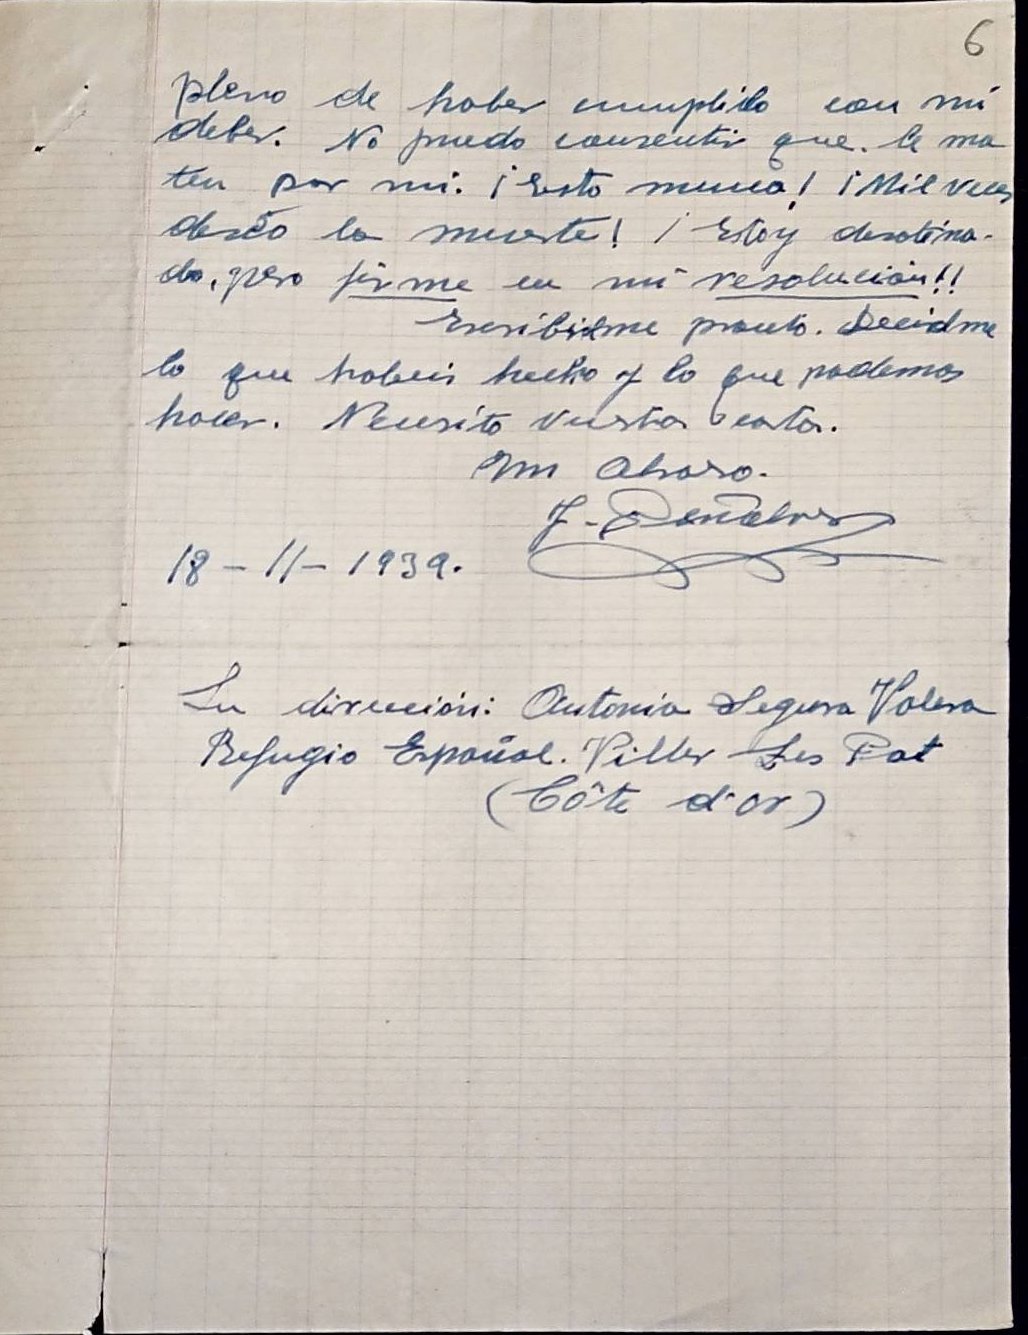 6
pleno de haber cumplido con mi
deber. No puedo consentir que le ma
ten por mi. ¡Esto nunca! ¡Mil veces
deseo la muerte! ¡Estoy desatina-
do, pero firme en mi resolución!!
Escribirme pronto. Decidme
lo que habeis hecho y lo que podemos
hacer. Necesito vuestra carta.
Un abrazo.
J. Peñalver
18-11-1939.
Su dirección: Antonia Segura Valera
Refugio Español. Viller Les Pot
(Côte d'or)